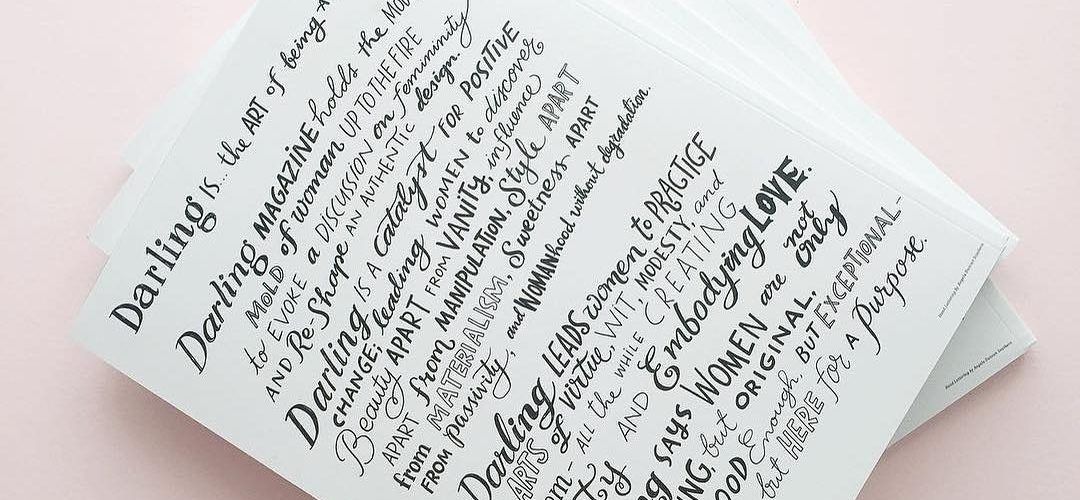 Darling IS... the ART of being
Darling MAGAZINE holds the
MOLD of woman UP TO THE FIRE
to EVOKE a DISCUSSION on femininity
AND Re-Shape AN AUTHENTIC design.
Darling IS A Catalyst FOR POSITIVE
CHANGE; leading WOMEN to discover
Beauty APART FROM VANITY, influence
APART from MANIPULATION, Style APART
from MATERIALISM, Sweetness APART
FROM passivity, and WOMANhood without degradation.
Darling LEADS women to PRACTICE
ARTS of virtue, WIT, MODESTY, and
ALL the WHILE CREATING
AND Embodying LOVE.
SAYS WOMEN are not only
but ORIGINAL,
Enough, BUT EXCEPTIONAL-
but HERE for a Purpose.
Hand Lettering by Angela